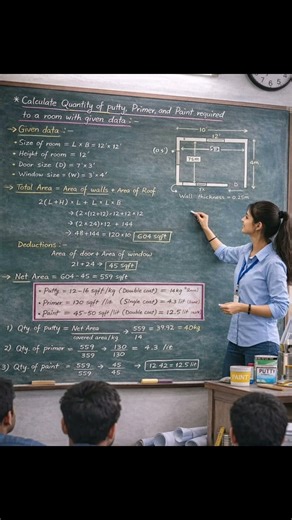 * Calculate Quantity of putty, Primer, and Paint required
to a room with given data :-
→ Given data :-
• Size of room = L × B = 12' × 12'
• Height of room = 12'
• Door size (D) = 7' × 3'
• Window size (W) = 3' × 4'
→ Total Area = Area of walls + Area of Roof
2(L+H) × L + L × B
→ (2×(12+12)×12+12×12
→ (2×24)×12 + 144
→ 48+144 = 120×10 604 sqft
Deductions :-
Area of door + Area of window
21 + 24 → 45 sqft
→ Net Area = 604 - 45 = 559 sqft
• Putty = 12-16 sqft/kg (Double coat) = 14kg
• Primer = 120 sqft /lit (Single coat) = 4.3 lit
• Paint = 45-50 sqft/lit (Double coat) = 12.5 lit
1) Qty. of Putty = Net Area / covered area/kg → 559 / 14 = 39.92 = 40kg
2) Qty. of primer = 559 / 359 → 130 / 130 = 4.3 /lit
3) Qty. of paint = 559 / 559 → 45 / 45 → 12.42 = 12.5 lit
10
12'
D
Wall thickness = 0.23m
PAINT
PUTTY